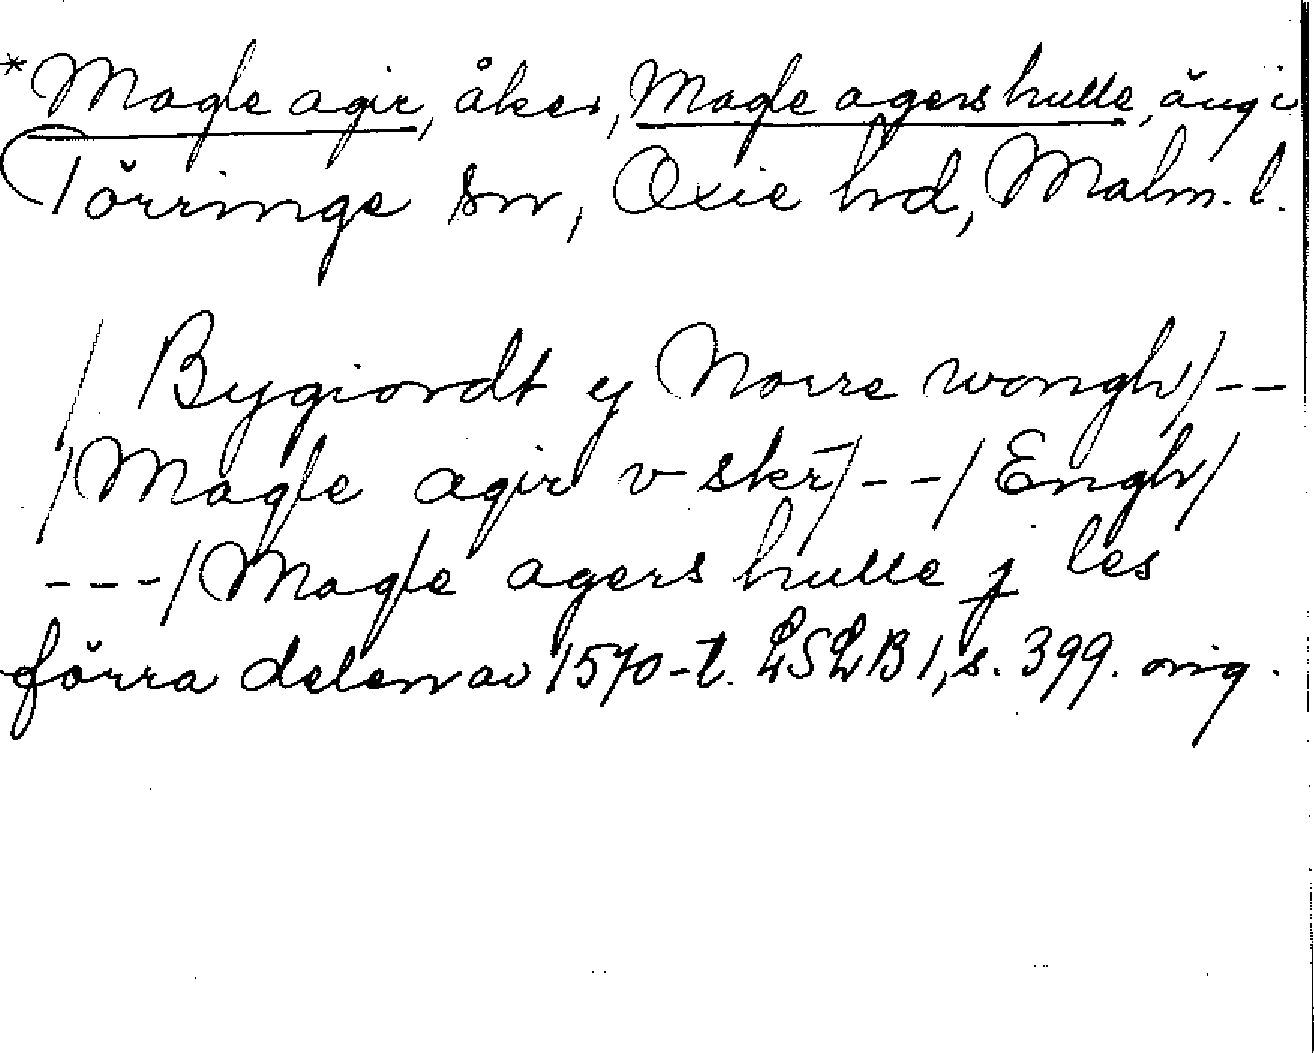 *Magle agir, åker, Magle agers hulle, äng i
Törringe sn, Oxie hd, Malm. l.
/ Bygiordt y Norre wongh/--
/Magle agir v skr̄/--/Engh/
---/Magle agers hulle j les
förra delen av 1570-t. LSLB1, s. 399. orig.